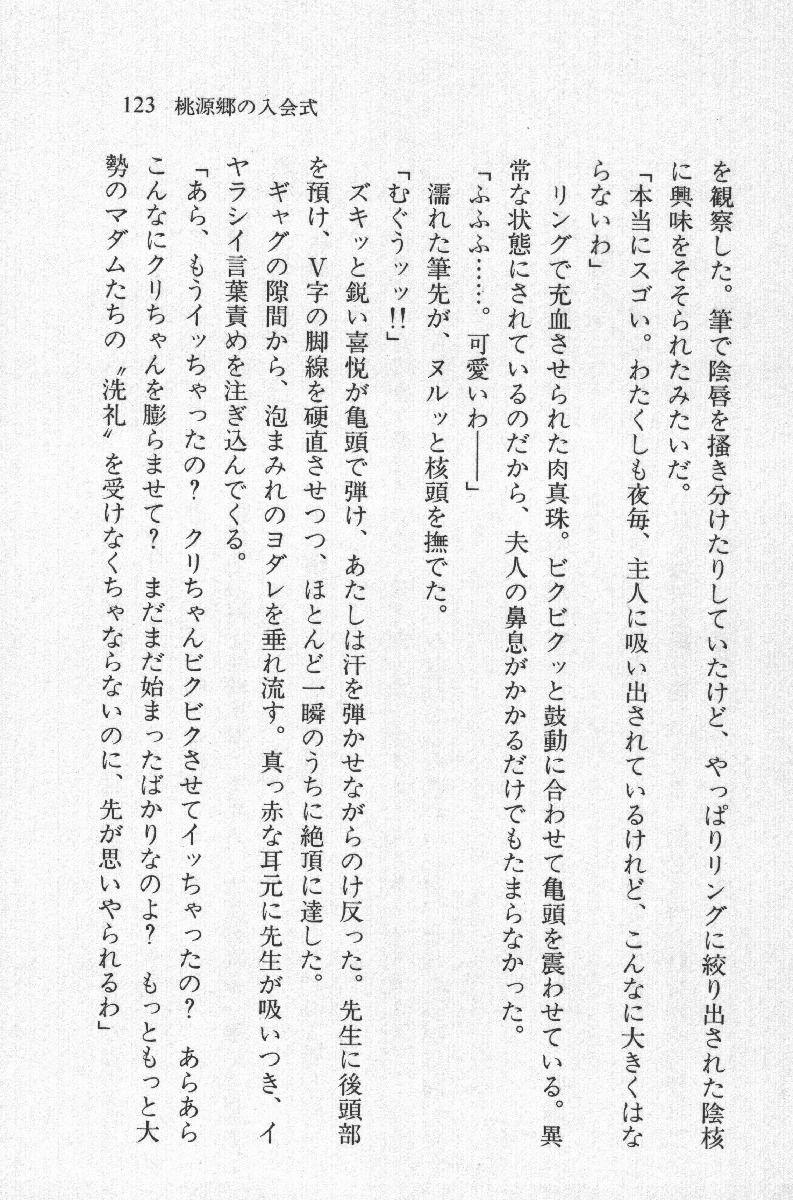 123 桃源郷の入会式
を観察した。筆で陰唇を掻き分けたりしていたけど、やっぱりリングに絞り出された陰核
に興味をそそられたみたいだ。
「本当にスゴい。わたくしも夜毎、主人に吸い出されているけれど、こんなに大きくはな
らないわ」
リングで充血させられた肉真珠。ビクビクッと鼓動に合わせて亀頭を震わせている。異
常な状態にされているのだから、夫人の鼻息がかかるだけでもたまらなかった。
「ふふふ……。可愛いわ――」
濡れた筆先が、ヌルッと核頭を撫でた。
「むぐうッッ!!」
ズキッと鋭い喜悦が亀頭で弾け、あたしは汗を弾かせながらのけ反った。先生に後頭部
を預け、V字の脚線を硬直させつつ、ほとんど一瞬のうちに絶頂に達した。
ギャグの隙間から、泡まみれのヨダレを垂れ流す。真っ赤な耳元に先生が吸いつき、イ
ヤラシイ言葉責めを注ぎ込んでくる。
「あら、もうイッちゃったの？ クリちゃんビクビクさせてイッちゃったの？ あらあら
こんなにクリちゃんを膨らませて？ まだまだ始まったばかりなのよ？ もっともっと大
勢のマダムたちの〝洗礼〟を受けなくちゃならないのに、先が思いやられるわ」